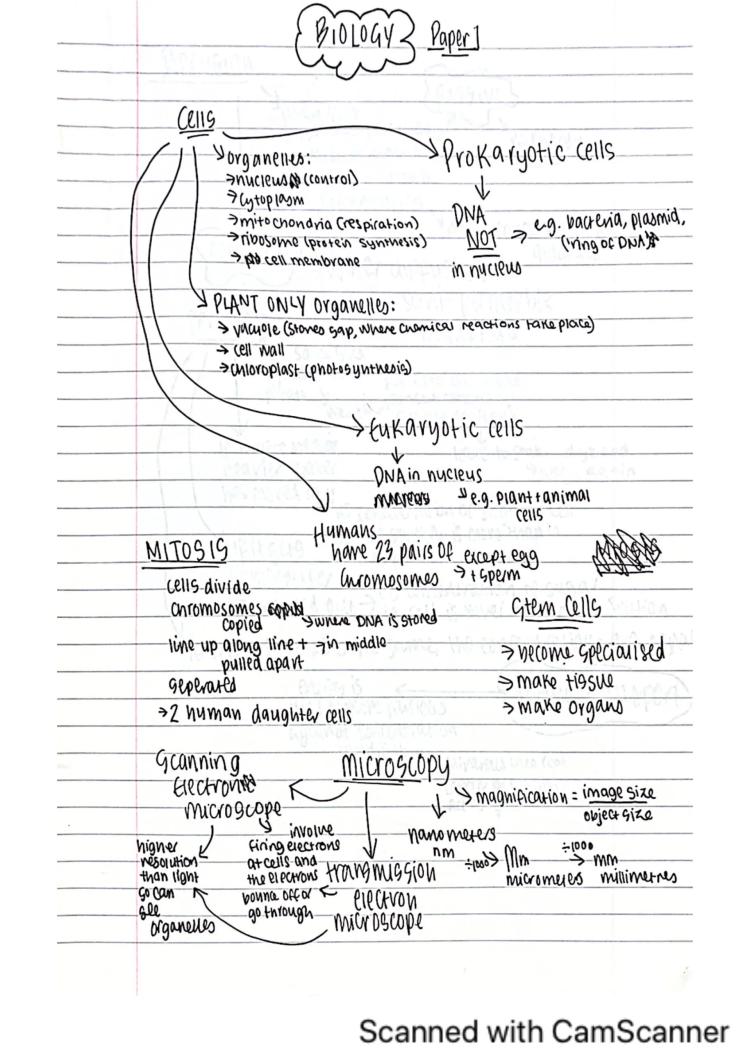 BIOLOGY Paper 1
Cells
Organelles:
→ nucleus (control)
→ cytoplasm
→ mitochondria (respiration)
→ ribosome (protein synthesis)
→ cell membrane
Prokaryotic cells
DNA
NOT
in nucleus
→ e.g. bacteria, plasmid,
('ring of DNA')
PLANT ONLY Organelles:
→ vacuole (stores gap, where chemical reactions take place)
→ cell wall
→ chloroplast (photosynthesis)
Eukaryotic cells
DNA in nucleus
e.g. plant + animal
cells
Humans
have 23 pairs of
Chromosomes
→ except egg
+ sperm
MITOSIS
cells divide
chromosomes
copied → where DNA is stored
line up along line + → in middle
pulled apart
seperated
→ 2 human daughter cells
Stem Cells
→ become specialised
→ make tissue
→ make organs
Microscopy
Scanning
Electron
microscope
higher
resolution
than light
so can
see
organelles
involve
firing electrons
at cells and
the electrons
bounce off or
go through
transmission
electron
microscope
magnification = image size
object size
nanometers
nm
÷1000 → Mm
micrometers
÷1000 → mm
millimetres
Scanned with CamScanner